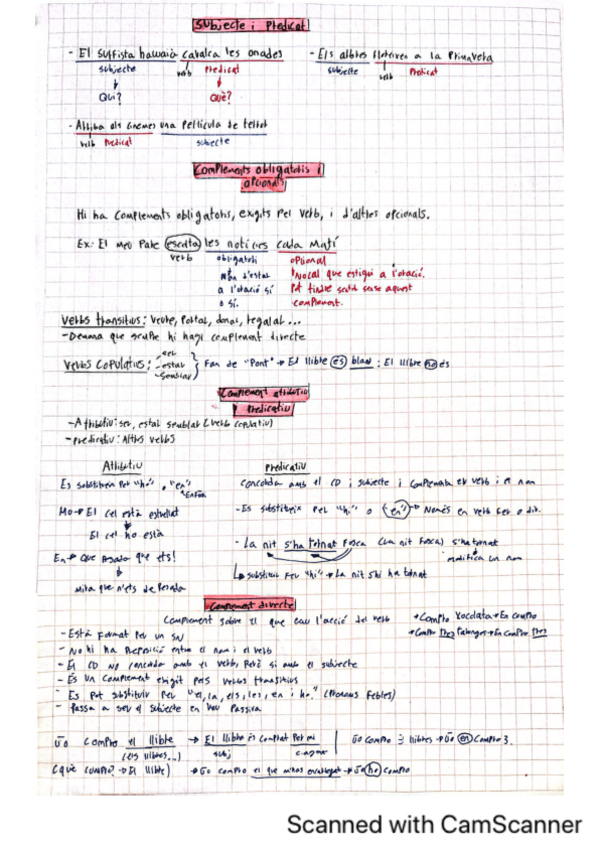 Subjecte i Predicat
- El surfista hawaià cavalca les onades
subjecte verb Predicat
Qui? Què?
- Els arbres floreixen a la Primavera
subjecte verb Predicat
- Arriba als cinemes una Pel·lícula de terror
verb Predicat subjecte
Complements obligatoris i
opcionals
Hi ha complements obligatoris, exigits Pel verb, i d'altres opcionals.
Ex: El meu Pare escolta les notícies cada matí
verb obligatori opcional
a l'oració sí
o sí.
No cal que estigui a l'oració.
Pot tindre sentit sense aquest
complement.
Verbs transitius: Veure, Portar, donar, regalar...
- Demana que sempre hi hagi complement directe
Verbs copulatius: - ser
- estar
- semblar
Fan de "Pont" → El llibre és blau : El llibre ho és
Complement atributiu
Predicatiu
- Atributiu: ser, estar, semblar (verb copulatiu)
- Predicatiu: Altres verbs
Atributiu
Es substitueix Per "ho", o "en"
Mo → El cel està estrellat
El cel ho està
En → Que ets!
Mira que n'ets de
Predicatiu
Concorda amb el CD i subjecte i complementa el verb i el nom
- Es substitueix Pel "hi" o "en" → Només en verb fer o dir.
- La nit s'ha tornat fosca (La nit fosca) s'ha tornat
modifica un nom
substituir Per "hi" → La nit s'hi ha tornat
Complement directe
Complement sobre el que cau l'acció del verb
- Està format Per un SN
- No hi ha Preposició entre el nom i el verb
- El CD no concorda amb el verb, Però si amb el subjecte
- És un complement exigit Pels verbs transitius
- Es Pot substituir Per "el, la, els, les, en i ho." (Pronoms Febles)
- Passa a ser el subjecte en Veu Passiva
→ Compro Xocolata → En compro
→ Compro tres → En compro tres
Jo compro el llibre → El llibre és comprat Per mi
(els llibres...) subj c. agent
Jo compro 3 llibres → Jo en compro 3.
(què compro? → El llibre)
→ Jo compro el que → Jo ho compro
Scanned with CamScanner